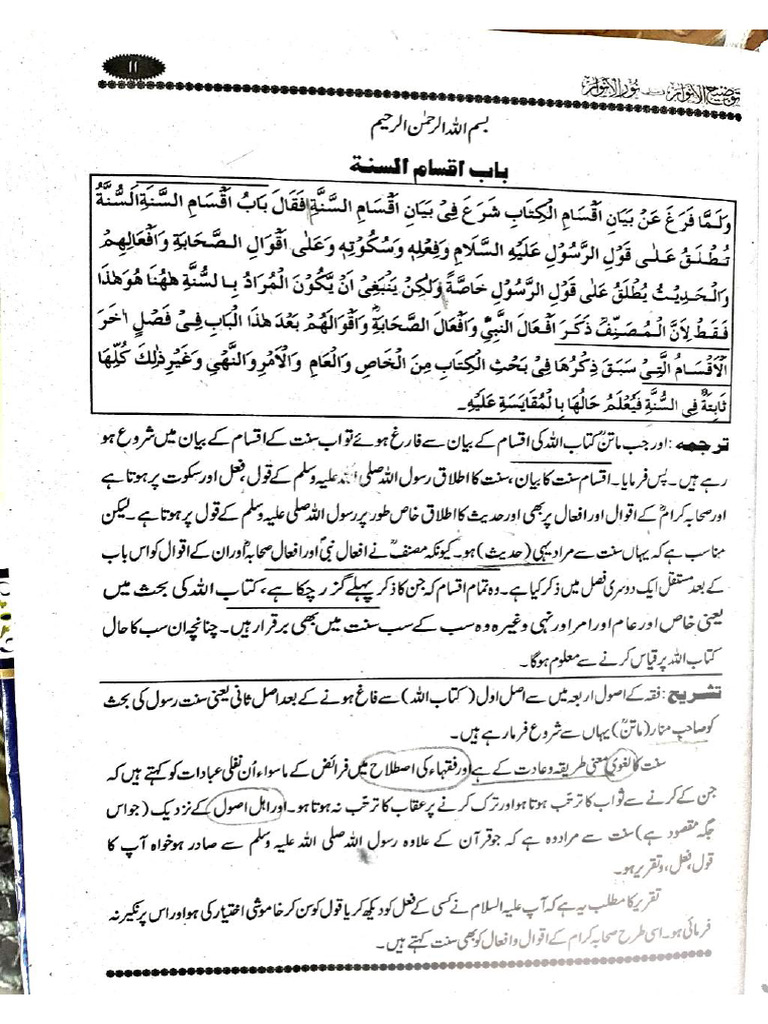 ۱۱
توضیح الانوار نور الانوار
بسم اللہ الرحمٰن الرحیم
باب اقسام السنة
وَلَمَّا فَرَغَ عَنْ بَيَانِ اَقْسَامِ الْكِتَابِ شَرَعَ فِىْ بَيَانِ اَقْسَامِ السُّنَّةِ فَقَالَ بَابُ اَقْسَامِ السُّنَةِ اَلسُّنَّةُ
تُطْلَقُ عَلٰى قَوْلِ الرَّسُوْلِ عَلَيْهِ السَّلَامُ وَفِعْلِهٖ وَسُكُوْتِهٖ وَعَلٰى اَقْوَالِ الصَّحَابَةِ وَاَفْعَالِهِمْ
وَالْحَدِيْثُ يُطْلَقُ عَلٰى قَوْلِ الرَّسُوْلِ خَاصَّةً وَلٰكِنْ يَنْبَغِىْ اَنْ يَّكُوْنَ الْمُرَادُ بِالسُّنَّةِ هٰهُنَا هُوَ هٰذَا
فَقَطْ لِاَنَّ الْمُصَنِّفَؒ ذَكَرَ اَفْعَالَ النَّبِىِّؐ وَاَفْعَالَ الصَّحَابَةِؓ وَاَقْوَالَهُمْ بَعْدَ هٰذَا الْبَابِ فِىْ فَصْلٍ اٰخَرَ
اَلْاَقْسَامُ الَّتِىْ سَبَقَ ذِكْرُهَا فِىْ بَحْثِ الْكِتَابِ مِنَ الْخَاصِ وَالْعَامِ وَالْاَمْرِ وَالنَّهْىِ وَغَيْرِ ذٰلِكَ كُلِّهَا
ثَابِتَةٌ فِى السُّنَّةِ فَيُعْلَمُ حَالُهَا بِالْمُقَايَسَةِ عَلَيْهِ۔
ترجمہ: اور جب ماتنؒ کتاب اللہ کی اقسام کے بیان سے فارغ ہوئے تو اب سنت کے اقسام کے بیان میں شروع ہو
رہے ہیں۔ پس فرمایا۔ اقسام سنت کا بیان، سنت کا اطلاق رسول اللہ صلی اللہ علیہ وسلم کے قول، فعل اور سکوت پر ہوتا ہے
اور صحابہ کرامؓ کے اقوال اور افعال پر بھی اور حدیث کا اطلاق خاص طور پر رسول اللہ صلی علیہ وسلم کے قول پر ہوتا ہے۔ لیکن
مناسب ہے کہ یہاں سنت سے مراد یہی (حدیث) ہو۔ کیونکہ مصنفؒ نے افعال نبیؐ اور افعال صحابہؓ اور ان کے اقوال کو اس باب
کے بعد مستقل ایک دوسری فصل میں ذکر کیا ہے۔ وہ تمام اقسام کہ جن کا ذکر پہلے گزر چکا ہے، کتاب اللہ کی بحث میں
یعنی خاص اور عام اور امر اور نہی وغیرہ وہ سب کے سب سنت میں بھی برقرار ہیں۔ چنانچہ ان سب کا حال
کتاب اللہ پر قیاس کرنے سے معلوم ہوگا۔
تشریح: فقہ کے اصول اربعہ میں سے اصل اول (کتاب اللہ) سے فاغ ہونے کے بعد اصل ثانی یعنی سنت رسول کی بحث
کو صاحب منار (ماتنؒ) یہاں سے شروع فرما رہے ہیں۔
سنت کا لغوی معنی طریقہ و عادت کے ہے اور فقہاء کی اصطلاح میں فرائض کے ماسواء اُن نفلی عبادات کو کہتے ہیں کہ
جن کے کرنے سے ثواب کا ترتّب ہوتا ہو اور ترک کرنے پر عقاب کا ترتّب نہ ہوتا ہو۔ اور اہل اصول کے نزدیک (جو اس
جگہ مقصود ہے) سنت سے مراد وہ ہے کہ جو قرآن کے علاوہ رسول اللہ صلی اللہ علیہ وسلم سے صادر ہو خواہ آپ کا
قول، فعل، و تقریر ہو۔
تقریر کا مطلب یہ ہے کہ آپ علیہ السلام نے کسی کے فعل کو دیکھ کر یا قول کو سن کر خاموشی اختیار کی ہو اور اس پر نکیر نہ
فرمائی ہو۔ اسی طرح صحابہ کرام کے اقوال و افعال کو بھی سنت کہتے ہیں۔